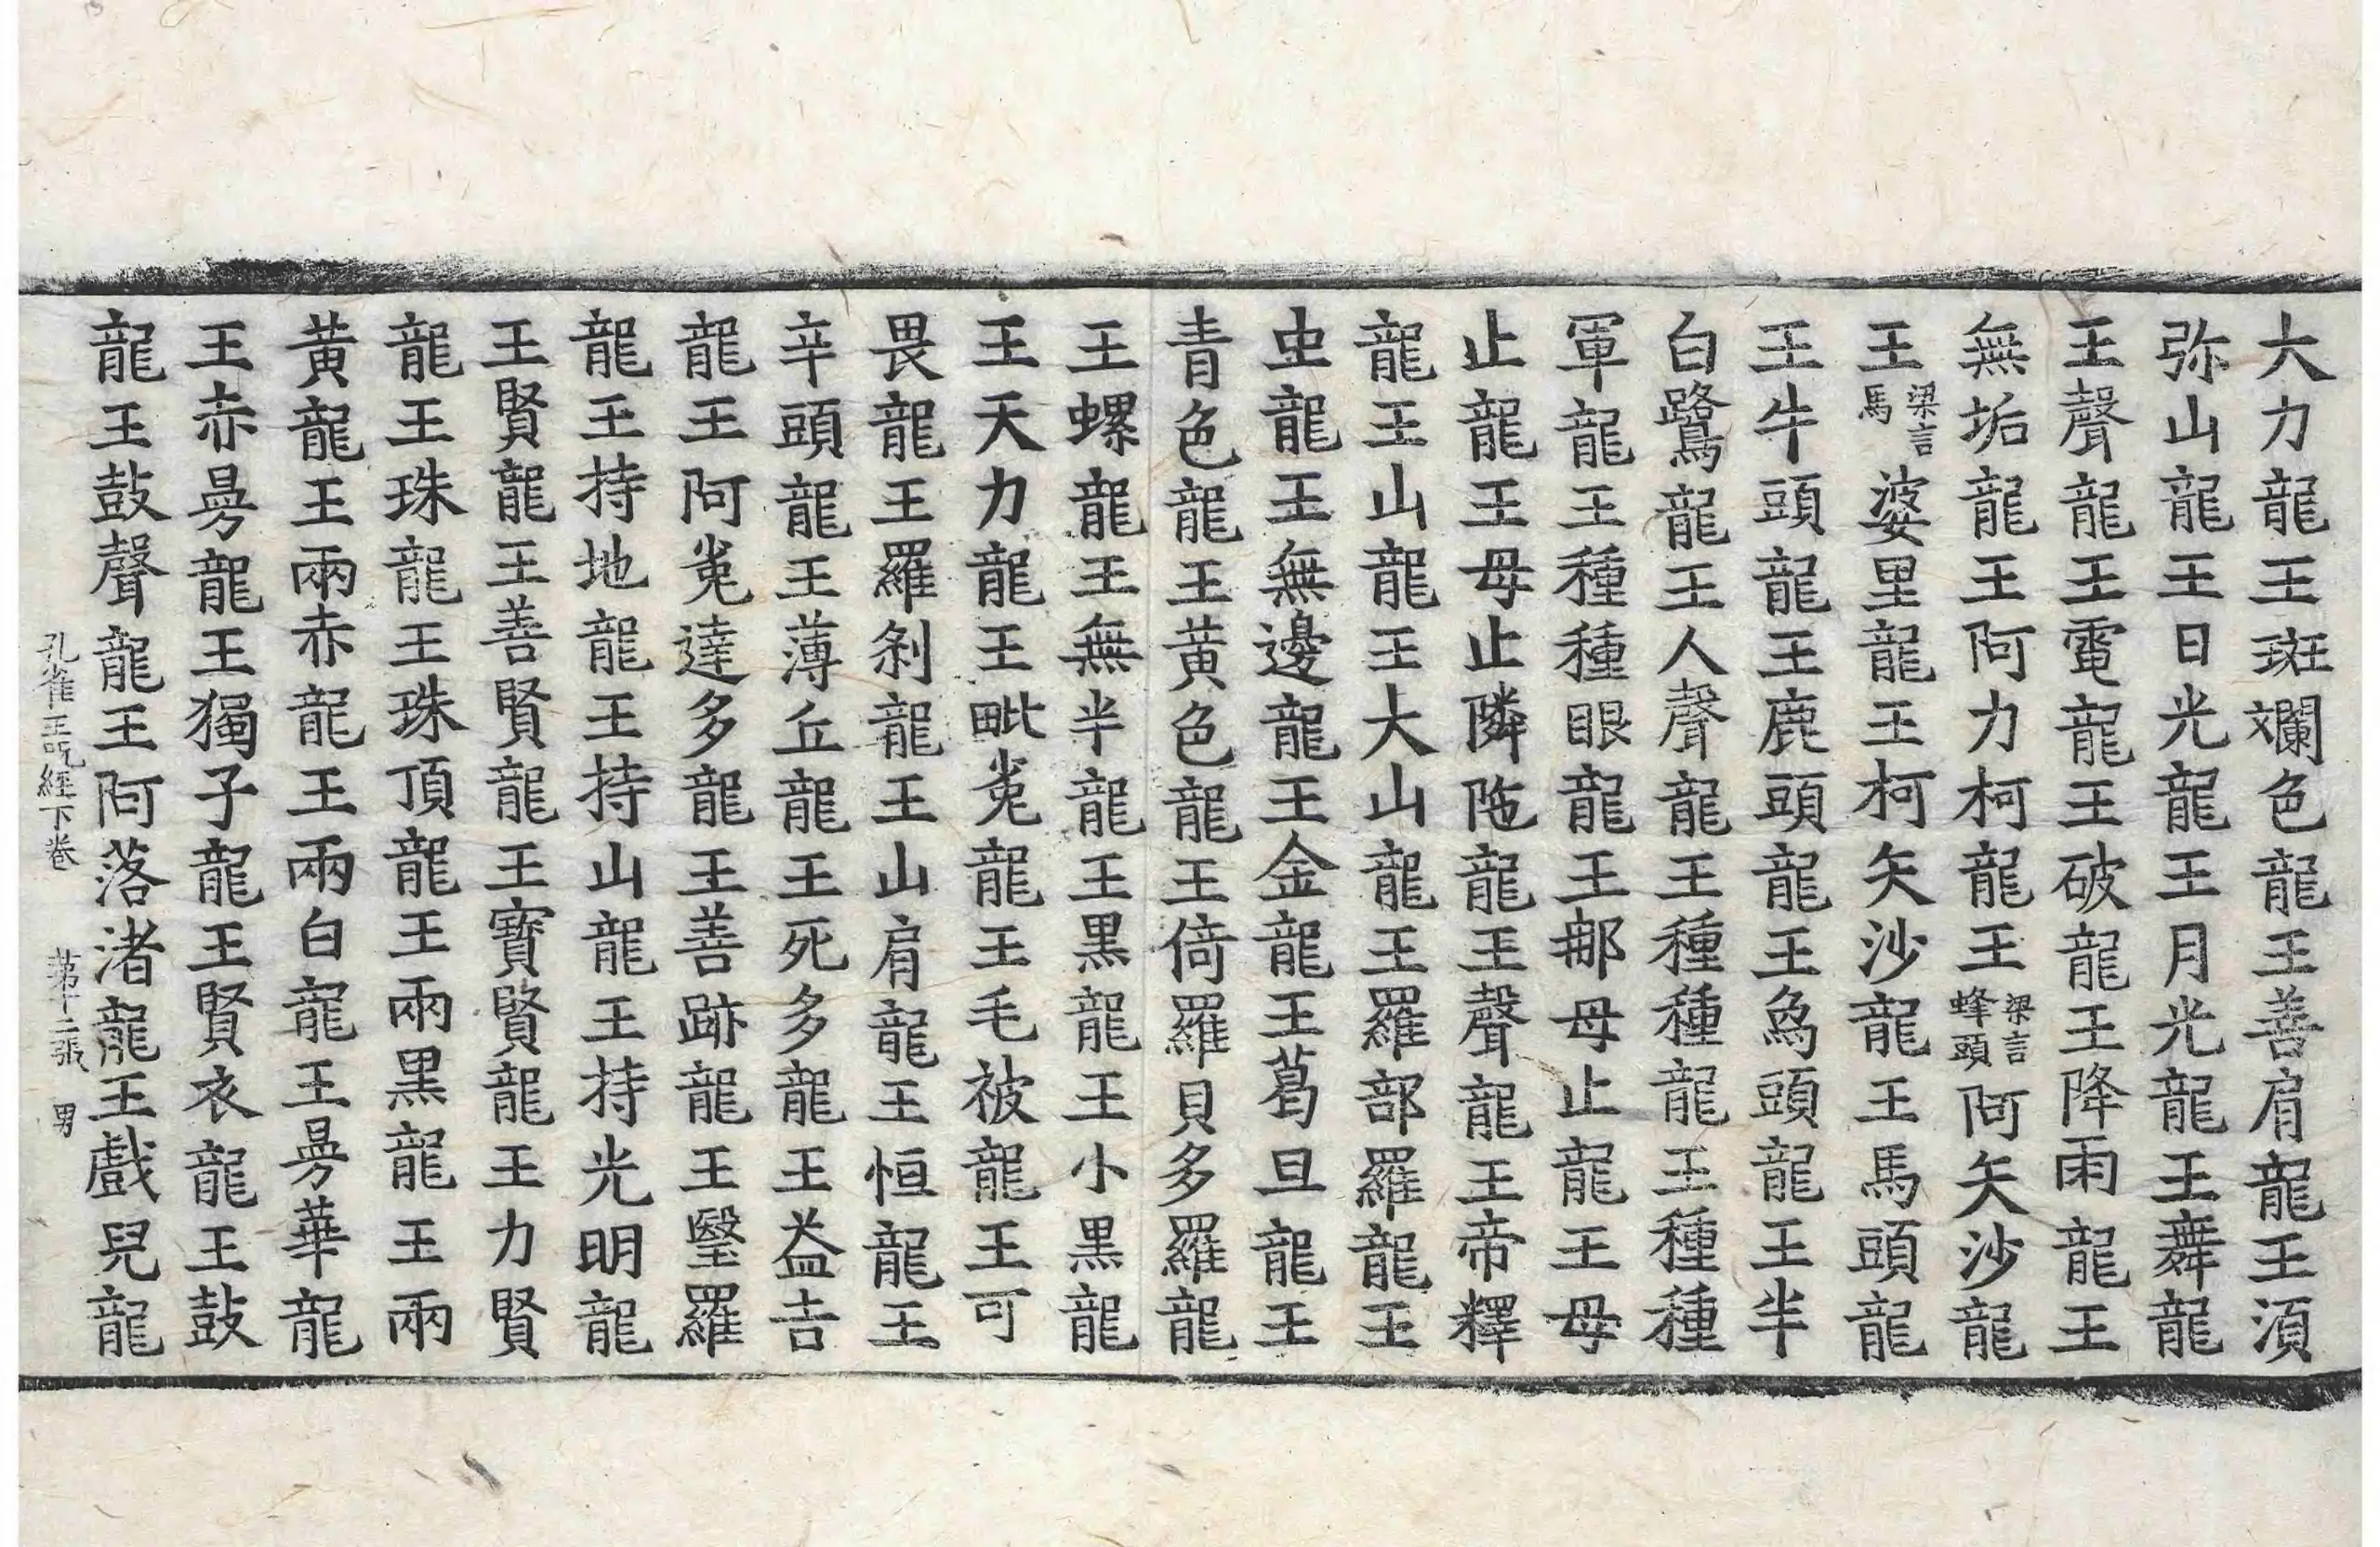 大力龍王斑斕色龍王善肩龍王湏
弥山龍王日光龍王月光龍王舞龍
王聲龍王電龍王破龍王降雨龍王
無垢龍王阿力柯龍王梁言蜂頭阿矢沙龍
王梁言馬婆里龍王柯矢沙龍王馬頭龍
王牛頭龍王鹿頭龍王爲頭龍王半
白鷺龍王人聲龍王種種龍王種種
軍龍王種種眼龍王䣕母止龍王母
止龍王母止隣陁龍王聲龍王帝釋
龍王山龍王大山龍王羅部羅龍王
虫龍王無邊龍王金龍王葛旦龍王
青色龍王黄色龍王倚羅貝多羅龍
王螺龍王無半龍王黒龍王小黒龍
王天力龍王毗㝹龍王毛被龍王可
畏龍王羅刹龍王山肩龍王恒龍王
辛頭龍王薄丘龍王死多龍王益吉
龍王阿㝹達多龍王善跡龍王瑿羅
龍王持地龍王持山龍王持光明龍
王賢龍王善賢龍王寶賢龍王力賢
龍王珠龍王珠頂龍王兩黒龍王兩
黄龍王兩赤龍王兩白龍王㬅華龍
王赤㬅龍王獨子龍王賢衣龍王鼓
龍王鼓聲龍王阿落渚龍王戲兒龍
孔雀王呪經下卷 苐十二張 男